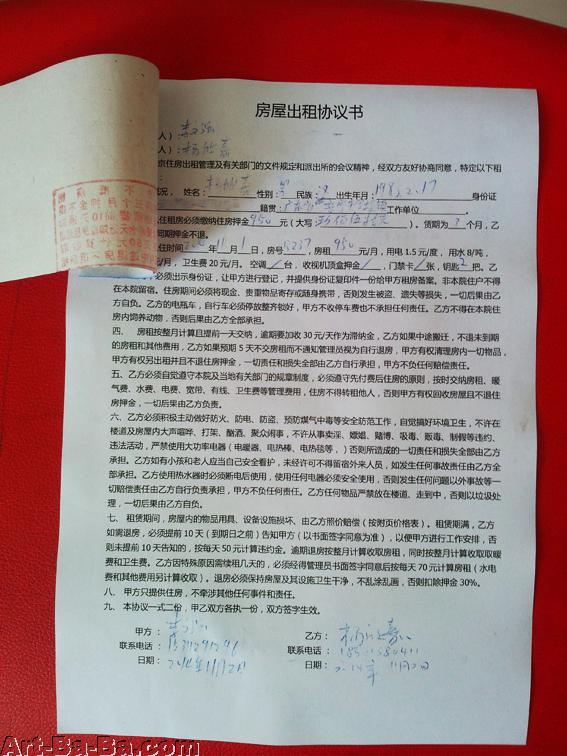 房屋出租协议书
人）：
人）：
京住房出租管理及有关部门的文件规定和派出所的会议精神，经双方友好协商同意，特定以下租
况，姓名： 性别：男 民族：汉 出生年月：1983.2.17 身份证
籍贯： 工作单位 。
主租房必须缴纳住房押金950元（大写 ）。赁期为3个月，乙
同期押金不退。
住时间 11月1日，房号 ，房租950元/月，用电1.5元/度，用水8/吨，
元/月，卫生费20元/月。空调 台，收视机顶盒押金 ，门禁卡 张，钥匙2把。乙
必须出示身份证，让甲方进行登记，并提供身份证复印件一份给甲方租房备案。非本院住户不得
在本院留宿。住房期间必须将现金、贵重物品寄存或随身携带，否则发生被盗、遗失等损失，一切后果由乙
方自负。乙方的电瓶车，自行车必须停放整齐锁好，甲方不收停车费也不承担任何责任。乙方不得在本院住
房内饲养动物，否则后果由乙方全部承担。
四、 房租按整月计算且提前一天交纳，逾期要加收30元/天作为滞纳金，乙方如果中途搬迁，不退未到期
的房租和其他费用，乙方如果预期5天不交房租而不通知管理员视为自行退房，甲方有权清理房内一切物品，
甲方有权另出租并且不退住房押金，一切责任和损失全部由乙方自行承担，甲方不负任何赔偿责任。
五、乙方必须自觉遵守本院及当地有关部门的规章制度，必须遵守先付费后住房的原则，按时交纳房租、暖
气费、水费、电费、宽带、有线、卫生费等管理费用，住房不得转租他人，否则甲方有权回收房屋且不退住
房押金，一切后果由乙方负责。
六、乙方必须积极主动做好防火、防电、防盗、预防煤气中毒等安全防范工作，自觉搞好环境卫生，不许在
楼道及房屋内大声喧哗、打架、酗酒、聚众闹事，不许从事卖淫、嫖娼、赌博、吸毒、贩毒、制假等违约、
违法活动，严禁使用大功率电器（电暖器、电热棒、电热毯等，）否则所造成的一切责任和损失全部由乙方
承担。乙方如有小孩和老人应当自己安全看护，未经许可不得留宿外来人员，如发生任何事故责任由乙方全
部承担。乙方使用热水器时必须断电后使用，使用任何电器必须安全使用，否则发生任何问题以外事故等一
切赔偿责任由乙方自行负责承担，甲方不负任何责任。乙方任何物品严禁放在楼道、走到中，否则以垃圾处
理，一切后果由乙方自负。
七、 租赁期间，房屋内的物品用具、设备设施损坏、由乙方照价赔偿（按附页价格表）。租赁期满，乙方
如需退房，必须提前10天（到期日之前）告知甲方（以书面签字同意为准），以便甲方进行工作安排，否
则未提前10天告知的，按每天50元计算违约金。逾期退房按整月计算收取房租，同时按整月计算收取取暖
费和卫生费。乙方因特殊原因需续租几天的，必须经得管理员书面签字同意后按每天70元计算房租（水电
费和其他费用另计算收取）。退房必须保持房屋及其设施卫生干净，不乱涂乱画，否则扣除押金30%。
八、 甲方只提供住房，不牵涉其他任何事件和责任。
九、 本协议一式二份，甲乙双方各执一份，双方签字生效。
甲方： 乙方：
联系电话： 联系电话：
日期：2014年11月2日 日期： 11月2日
Art-Ba-Ba.com